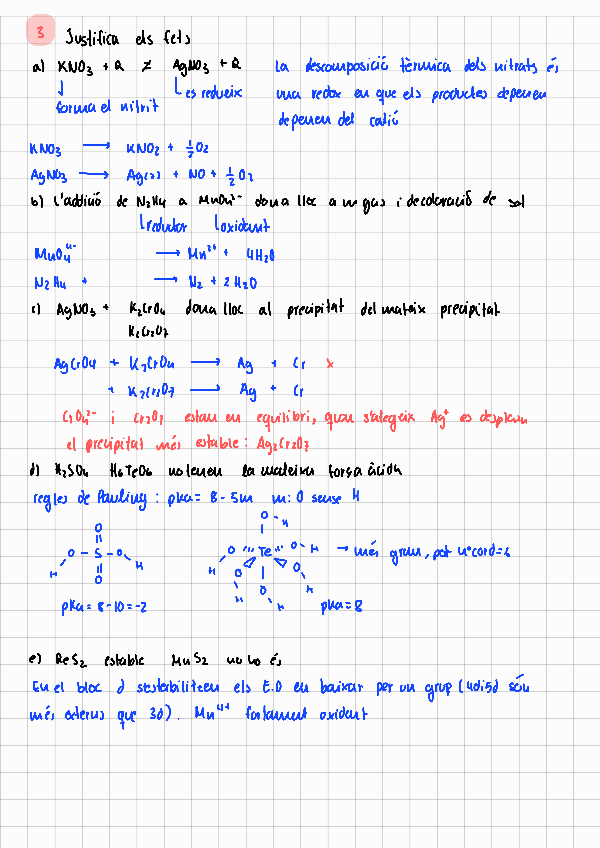 3 Justifica els fets
a) KNO3 + Q ≠ AgNO3 + Q La descomposició tèrmica dels nitrats és
forma el nitrit es redueix una redox en que els productes depenen
depenen del catió
KNO3 → KNO2 + ½O2
AgNO3 → Ag(s) + NO + ½O2
b) L'addició de N2H4 a MnO4²⁻ dona lloc a un gas i decoloració de sol
reductor oxidant
MnO4⁴⁻ → Mn²⁺ + 4H2O
N2H4 + → N2 + 2H2O
c) AgNO3 + K2CrO4 dona lloc al precipitat del mateix precipitat
K2Cr2O7
AgCrO4 + K2CrO4 → Ag + Cr x
+ K2Cr2O7 → Ag + Cr
CrO4²⁻ i Cr2O7 estan en equilibri, quan s'afegeix Ag⁺ es desplaça
el precipitat més estable: Ag2Cr2O7
d) H2SO4 H6TeO6 no tenen la mateixa força àcida
regles de Pauling: pka = 8-5m m: O sense H
O
O - S - O - H
H
O
pka = 8-10 = -2
O H
O Te O - H → més gran, pot nºcord=6
H O O
H O H
H
pka = 8
e) ReS2 estable MnS2 no ho és
En el bloc d s'esterbilitzen els E.O en baixar per un grup (4d i 5d són
més externs que 3d). Mn⁴⁺ fortament oxidant